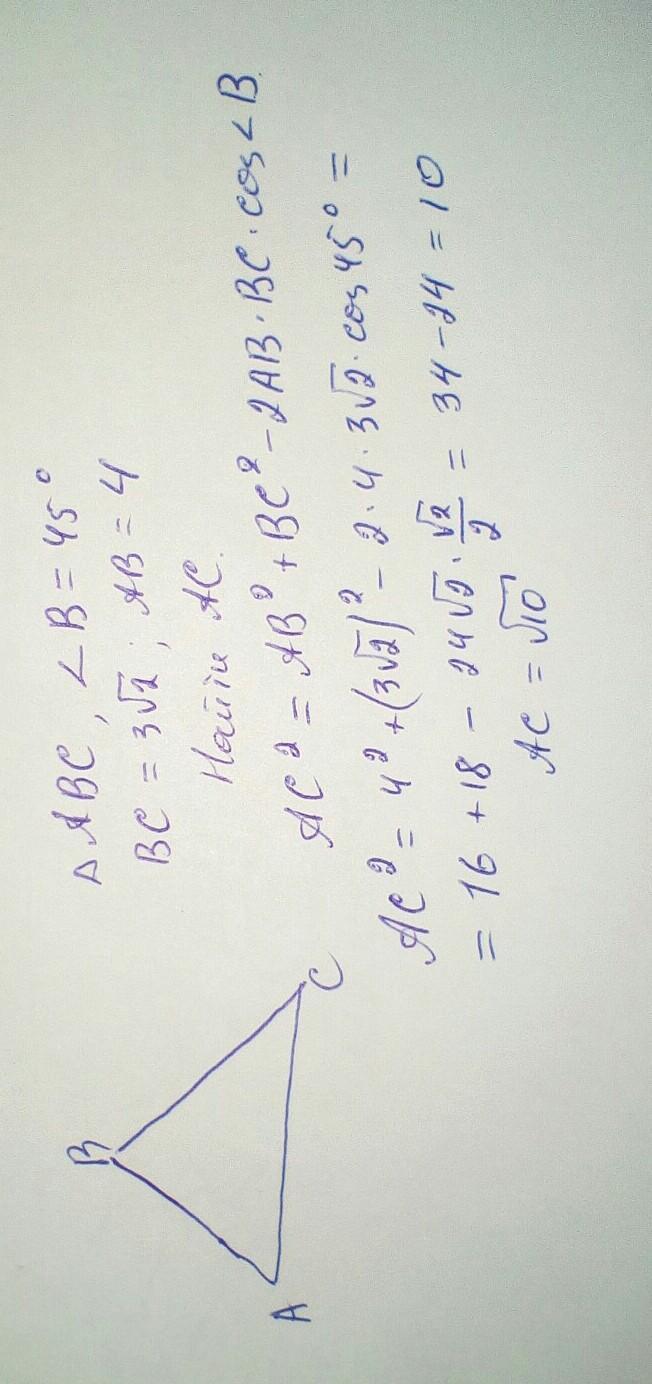 B
A
C
△ ABC, ∠B = 45°
BC = 3√2; AB = 4
Найти AC.
AC² = AB² + BC² - 2AB · BC · cos∠B.
AC² = 4² + (3√2)² - 2 · 4 · 3√2 · cos 45° =
= 16 + 18 - 24√2 · √2/2 = 34 - 24 = 10
AC = √10